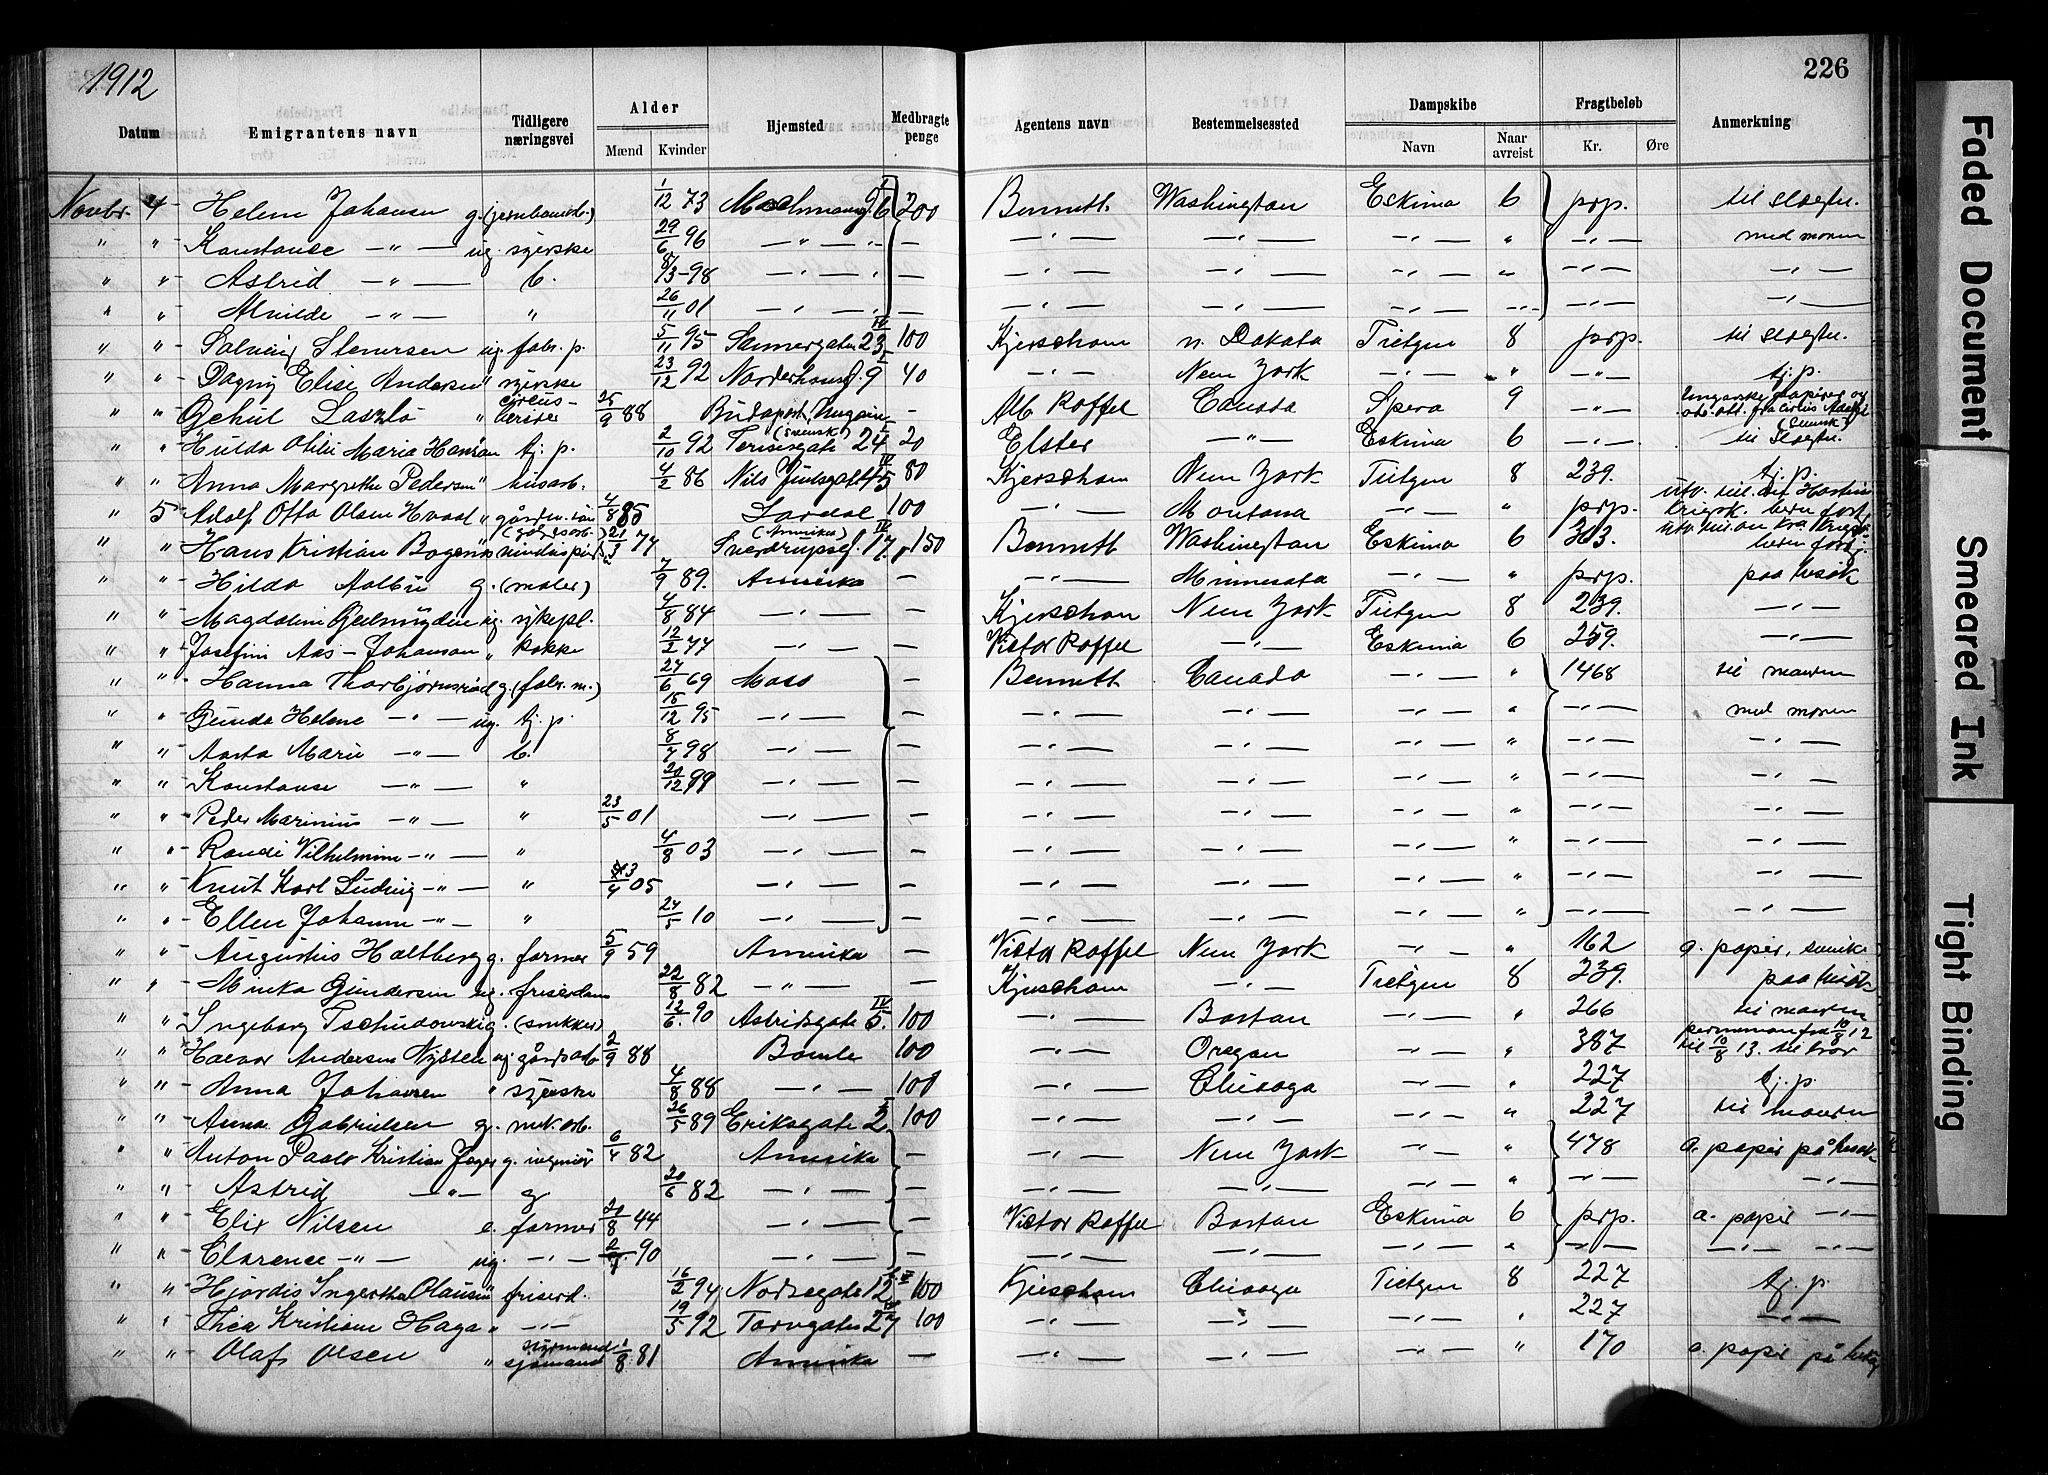 1912
226
Datum Emigrantens navn Tidligere næringsvei Alder Mænd Kvinder Hjemsted Medbragte penge Agentens navn Bestemmelsessted Dampskibe Navn Naar avreist Fragtbeløb Kr. Øre Anmerkning
Novbr. 4 Helene Johansen g. (jernbanearb.) 1/12 73 200 Bennett Washington Eskimo 6 prp. til slægtn.
" " Konstanse —"— ug. syerske 29/6 96 —"— — —"— —"— —"— " —"— med moren
" " Astrid —"— b. 98 —"— — —"— —"— —"— " —"— —"—
" " Alvilde —"— " 26/11 01 —"— — —"— —"— —"— —"— —"— —"—
" " Solveig Stenersen ug. fabr. p. 5/11 95 Sannergaten 23 IV 100 Kjerschow n. Dakota Tietgen 8 prp. til slægtn.
" " Dagny Elise Andersen " syerske 23/12 92 Norderhousg. 9 I 40 —"— New York —"— " —"— tj. p.
" " Gehul Laszlo " circus- 25/9 88 Budapest Ungarn — Alb Roffel Canada Spero 9 —"— Ungarske papirer og
" " Hulda Otilie Maria Hansson tj. p. 2/10 92 (svensk) 24 I 20 Elster —"— Eskimo 6 —"— (svensk) til slægtn.
" " Anna Margrethe Pedersen " husarb. 4/2 86 Nils Juelsgate 45 IV 80 Kjerschow New York Tietgen 8 239. tj. p.
" 5 Adolf Otto Olsen Hvaal " 4/8 85 Lardal 100 —"— Montana —"— " prp.
" " Hans Kristian Bogen 21/3 74 (Amerika) Sverdrupsg. 17 IV 150 Bennett Washington Eskimo 6 313.
" " Hilda Aalbu g. (maler) 7/9 89. Amerika — —"— Minnesota —"— " prp. paa besøk
" " Magdalene ug. sykepl. 4/8 84 —"— — Kjerschow New York Tietgen 8 239. —"—
" " Josefine Aas-Johansen " kokke 12/2 77 —"— — Victor Roffel —"— Eskimo 6 259. —"—
" " Hanna Thorbjørnsrød g. (fabr. m.) 27/6 69 Moss — Bennett Canada —"— " 1468 til manden
" " Gunda Helene —"— ug. tj. p. 15/12 95 —"— — —"— —"— —"— " —"— med moren
" " Aasta Marie —"— b. 8/7 98 —"— — —"— —"— —"— " —"— —"—
" " Konstanse —"— " 20/12 99 —"— — —"— —"— —"— " —"— —"—
" " Peder Marinius —"— " 23/5 01 —"— — —"— —"— —"— " —"— —"—
" " Randi Vilhelmine —"— " 4/8 03 —"— — —"— —"— —"— " —"— —"—
" " Knut Karl Ludvig —"— " 05 —"— — —"— —"— —"— " —"— —"—
" " Ellen Johanne —"— " 27/5 10 —"— — —"— —"— —"— " —"— —"—
" " Augustus Holtberg g. farmer 5/9 59 Amerika — Victor Roffel New York —"— " 162 a. papir.
" " Minka Gundersen ug. friserdame 22/8 82 —"— — Kjerschow —"— Tietgen 8 239. paa besøk
" " Ingeborg Tschudowski g. (snekker) 12/6 90 Astridsgate 5. IV 100 —"— Boston —"— " 266 til manden
" " Halvor Andersen Nysteen ug. gårdsarb. 2/9 88 Bamle 100 —"— Oregon —"— " 387 permission fra 10/8 12 til 10/8 13. til bror
" " Anna Johansen " syerske 4/8 88 —"— 100 —"— Chicago —"— " 227 tj. p.
" " Anna Gabrielsen g. 26/5 89 Eriksgate 2 I 100 —"— —"— —"— " 227 til manden
" " Anton Paalo Kristian g. ingeniør 6/4 82 Amerika — —"— New York —"— " 478 a. papir på besøk
" " Astrid —"— g 20/6 82 —"— — —"— —"— —"— " —"— —"—
" " Elix Nilsen e. farmer 20/8 44 —"— — Victor Roffel Boston Eskimo 6 prp. a. papir —"—
" " Clarence —"— ug. —"— 90 —"— — —"— —"— —"— " —"— —"— —"—
" " Hjørdis Ingertha Olausen " friserd. 16/2 94 Norsegate 12 100 Kjerschow Chicago Tietgen 8 227 tj. p.
" " Thea Kristiane Haga " —"— 19/5 92 Torvgaten 27 100 —"— —"— —"— " 227 —"—
" " Olaf Olsen " styrmand sjømand 1/8 81 Amerika — —"— —"— —"— " 170 a. papir på besøk
Faded Document
Smeared Ink
Tight Binding